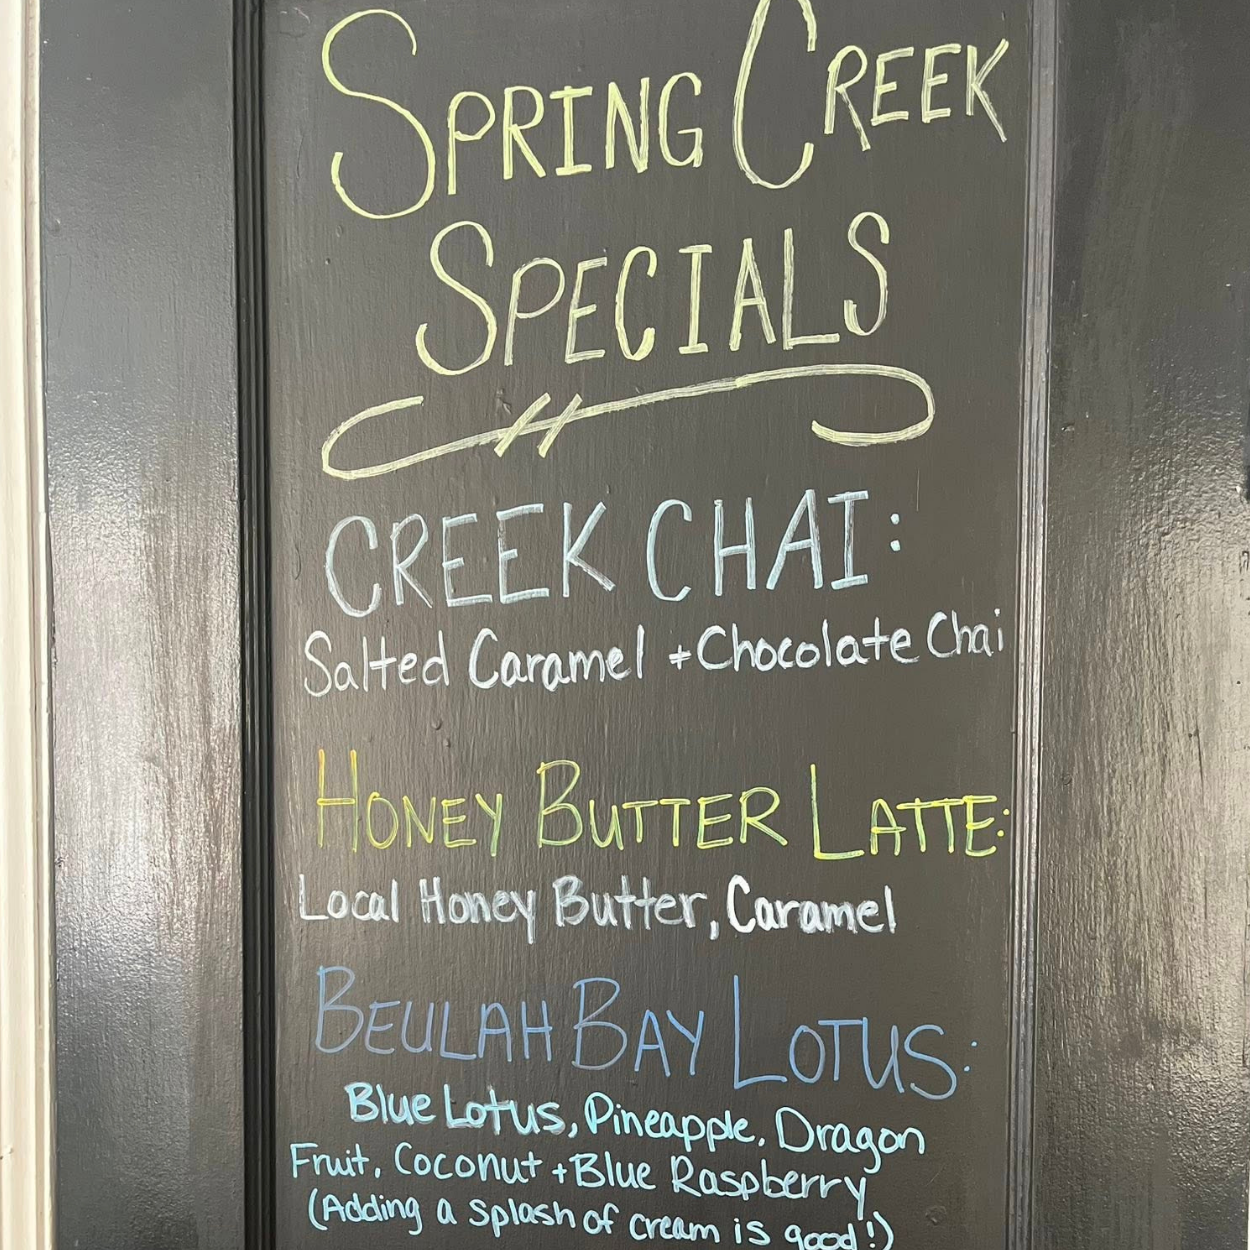 SPRING CREEK
SPECIALS
CREEK CHAI:
Salted Caramel + Chocolate Chai
HONEY BUTTER LATTE:
Local Honey Butter, Caramel
BEULAH BAY LOTUS:
Blue Lotus, Pineapple, Dragon
Fruit, Coconut + Blue Raspberry
(Adding a splash of cream is good!)